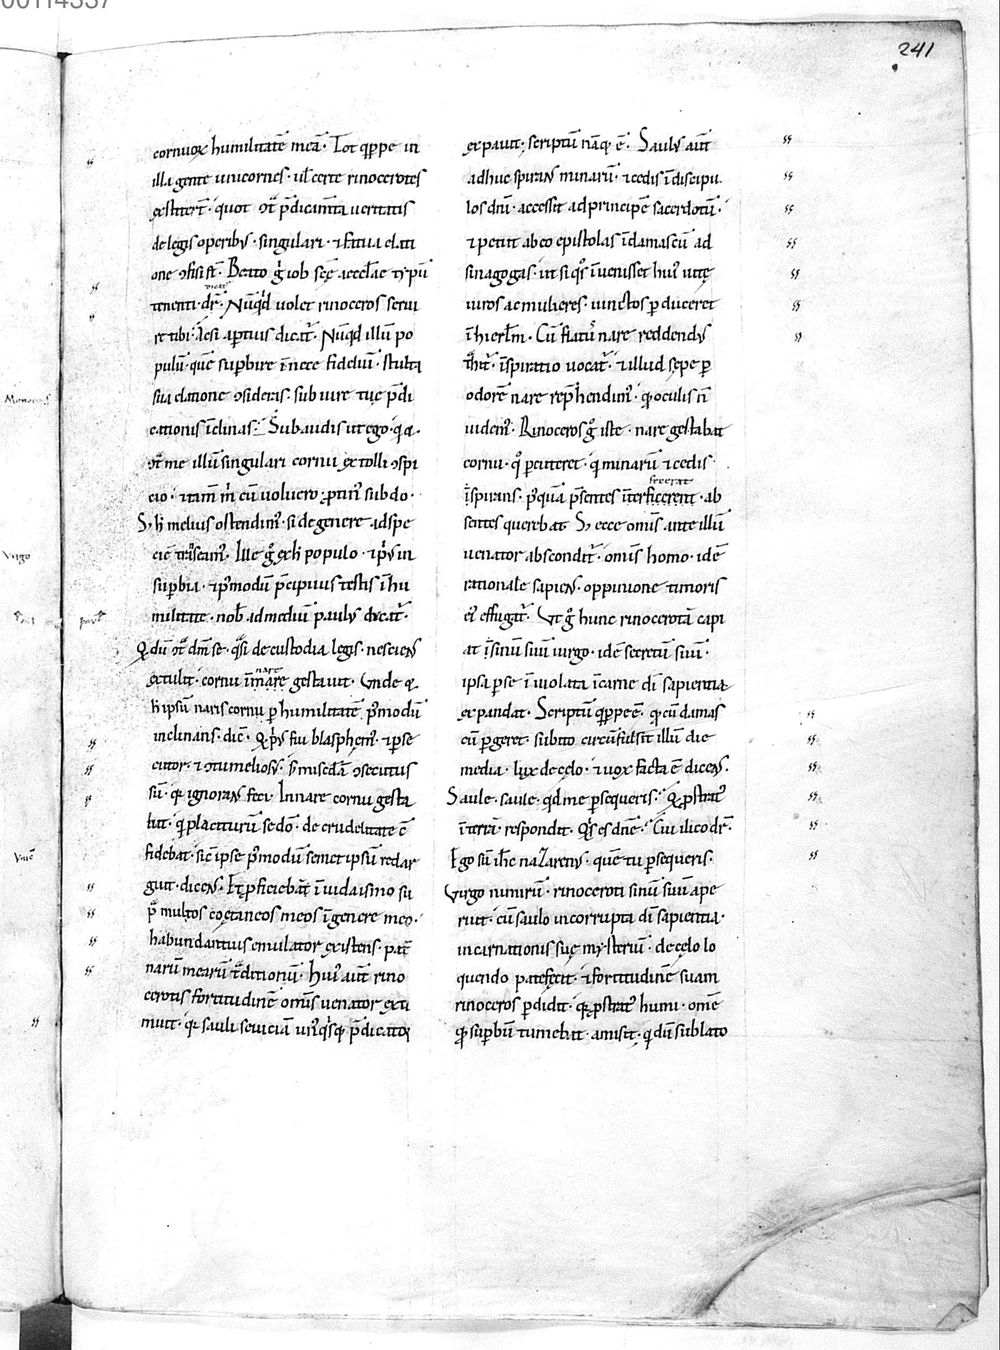 00114337
241
cornuox humilitatē meā· Tot qppe in
illa gente unicornes· ul certe rinocerotes
extiterť· quot ɔť p̄dicam̄ta ueritatis
de legis operibꝰ· singulari· ⁊ fatua elati
one ɔfisi sť· Beato g̊ iob
tenenti· dr̄· Nūqd uolet rinoceros serui
re tibi· Acsi aptius dicat̄· Nūqd illū po
pulū· quē supbire īnece fideliū· stulta
sua elatione ɔsideris· sub iure tuę p̄di
cationis īclinas· Subaudis ut ego· q̇ q̄·
ɔť me illū singulari cornu extolli ɔspi
cio· ⁊ tam̄ m̄ cū uoluero ptinꝰ subdo·
S; h̄ melius ostendimꝰ· si de genere ad spe
ciē trāseamꝰ· Ille g̊ ex h̄ populo· ⁊ pꝰ in
supbia· ⁊ pꝰmodū p̄cipuus testis ī hu
militate· nob̄ ad mediū paulꝰ ducať·
Q dū ɔť dm̄ se· q̄si de custodia legis· nesciens
extulit· cornu īnare gestauit· Unde ⁊
h̄ ipsū naris cornu p humilitatē pꝰmodū
inclinans· dic̄· Q pꝰ fui blasphemꝰ· ⁊ pse
cutor· ⁊ ɔtumeliosꝰ· s; miscďiā ɔsecutus
sū· q̄ ignorans feci· In nare cornu gesta
bat· q̇ placiturū se dō· de crudelitate ɔ̄
fidebat· sic̄ ipse pꝰmodū semet ipsū redar
guit· dicens· Et pficiebā ī iudaismo su
p̄ multos coetaneos meos ī genere meo·
habundantius emulator existens· pať
narū mearū t̄ditionū· Huiꝰ aut̄ rino
cerotis fortitudinē omīs uenator exti
muit· q̄ sauli seuiciā unꝰqsq p̄dicator
expauit· scriptū nāq ē· Saulꝰ aut̄
adhuc spirans minarū· ⁊ cedis ī discipu
los dnī· accessit ad principē sacerdotū·
⁊ petiit ab eo epistolas ī damascū ad
sinagogas· ut si qs̊ īuenisset huiꝰ uitę
uiros ac mulieres· uinctos pduceret
ī hierl̄m· Cū flatꝰ nare reddendꝰ
ťhiť· īspiratio uocať· ⁊ illud sępe p
odorē nare rephendimꝰ· q oculis n̄
uidemꝰ· Rinoceros g̊ iste· nare gestabat
cornu· q̊ pcuteret· q̇ minarū ⁊ cedis·
īspirans· pꝰquā p̄sentes īterficerent· ab
sentes querebat· S; ecce omīs ante illū
uenator absconditꝰ· omīs homo· idē
rationale sapiens· oppinione timoris
eiꝰ effugať· Ut g̊ hunc rinocerotā capi
at· īsinū suū uirgo· idē secretū suū·
ipsa p se ī uiolata ī carne dī sapientia
expandat· Scriptū qppe ē· q cū damas
cū pgeret· subito circūfulsit illū die
media· lux de celo· ⁊ uox facta ē dicens·
Saule· saule· qd me psequeris· Q pstratꝰ
ī terrā· respondit· Qs es dnē· Cui ilico dr̄·
Ego sū ih̄c naZarenꝰ· quē tu psequeris·
Uirgo nimirū· rinoceroti sinū suū ape
ruit· cū saulo incorrupta dī sapientia·
incarnationis suę mysteriū· de celo lo
quendo patefecit· ⁊ fortitudinē suam
rinoceros pdidit· q̄ pstratꝰ humi· omē
q supbū tumebat· amisit· q̇ dū sublato